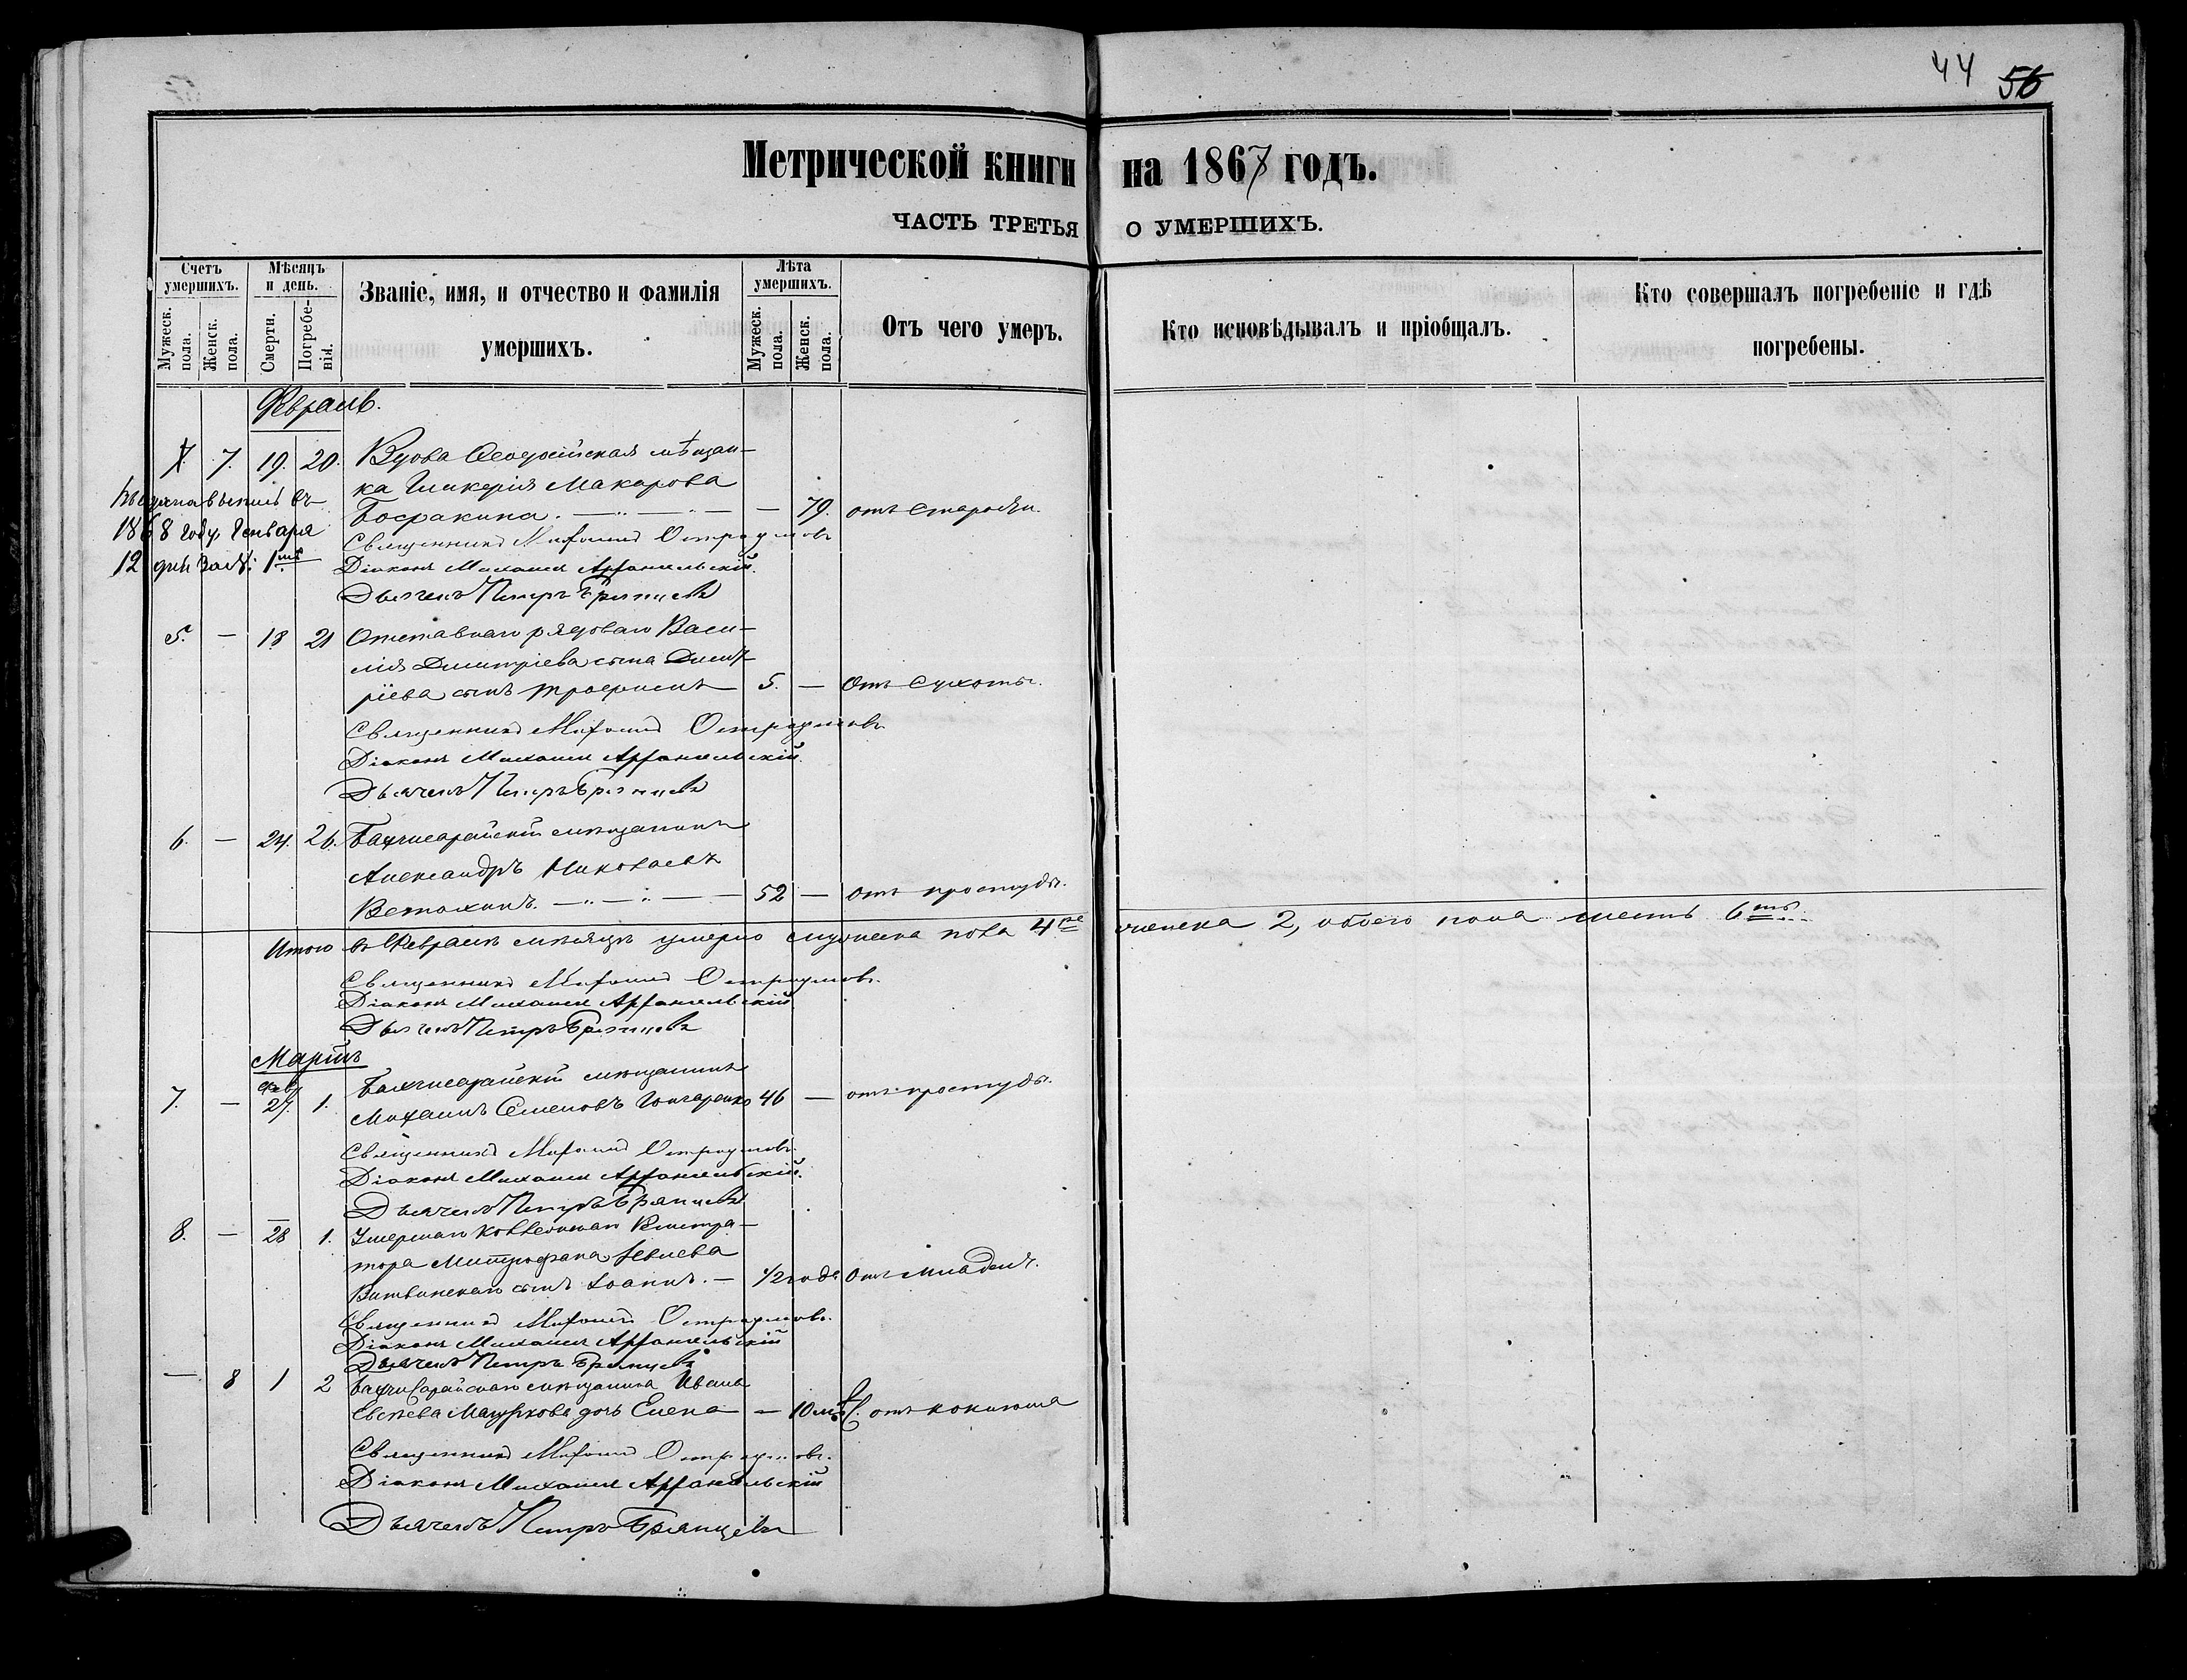 44 56
Метрической книги на 1867 годъ.
ЧАСТЬ ТРЕТЬЯ О УМЕРШИХЪ.
Счетъ умершихъ.
Мѣсяцъ и день.
Званіе, имя, и отчество и фамилія умершихъ.
Лѣта умершихъ.
Отъ чего умеръ.
Кто исповѣдывалъ и пріобщалъ.
Кто совершалъ погребеніе и гдѣ погребены.
Мужеск. пола.
Женск. пола.
Смерти.
Погребенія.
Мужеск. пола.
Женск. пола.
Февраль.
7. 19. 20. Вдова Ѳеодосійская мѣщан-
ка Гликерія Макарова
— 79. отъ старости.
въ
1868 году Генваря
12 дня за №: 1мъ
Священникъ Остроумовъ
Діаконъ Михаилъ Архангельскій.
Дьячекъ Петръ Брянцевъ
5. — 18 21 Отставнаго рядоваго Васи-
лія Димитріева сына Димит-
ріева сынъ Трофимъ 5. — Отъ Сухоты.
Священникъ Остроумовъ.
Діаконъ Михаилъ Архангельскій.
Дьячекъ Петръ Брянцевъ
6. — 24. 26. Бахчисарайскій мѣщанинъ
Александръ Николаевъ
— 52 — отъ простуды.
Итого въ Февралѣ мѣсяцѣ умерло мужеска пола 4ре женска 2, обоего пола шесть 6ть.
Священникъ Остроумовъ.
Діаконъ Михаилъ Архангельскій.
Дьячекъ Петръ Брянцевъ
Мартъ
Фев
7. — 27. 1. Бахчисарайскій мѣщанинъ
Михаилъ Семеновъ Гончаренко 46 — отъ простуды.
Священникъ Остроумовъ.
Діаконъ Михаилъ Архангельскій.
Дьячекъ Петръ Брянцевъ
8. — 28 1. Умершаго Коллежскаго Регистра-
тора Митрофана
сынъ Іоаннъ. — 1/2 года Отъ младенч.
Священникъ Остроумовъ.
Діаконъ Михаилъ Архангельскій
Дьячекъ Петръ Брянцевъ
— 8 1 2 Бахчисарайскаго мѣщанина Ивана
дочь Елена — 10 мѣ отъ коклюша
Священникъ Остроумовъ.
Діаконъ Михаилъ Архангельскій
Дьячекъ Петръ Брянцевъ